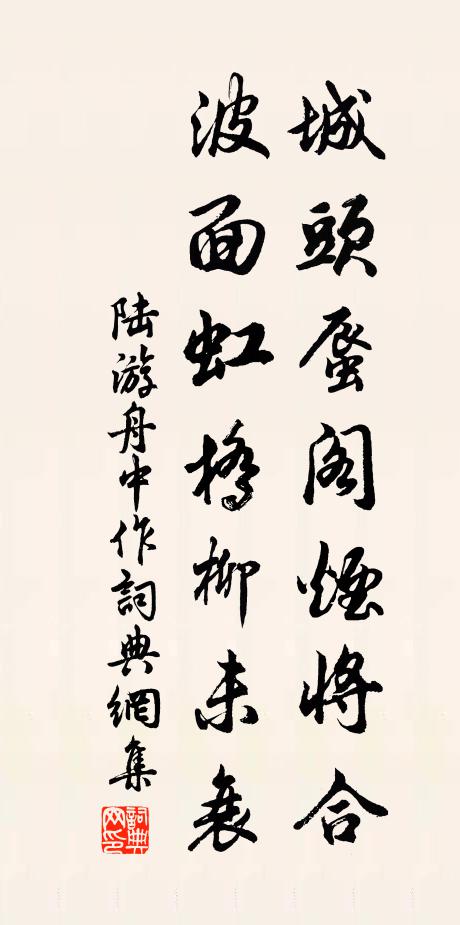 城頭蜃閣煙將合
波面虹橋柳未衰
陆游舟中作詞典網集
詞典网印